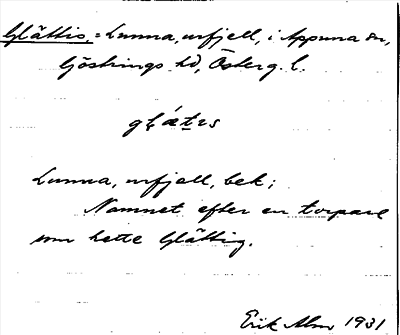 Glättis, = Lunna, urfjell, i Appuna sn,
Göstrings hd, Österg. l.
glä́tis
Lunna, urfjell, bek;
Namnet efter en torpare
som hette Glättig.
Erik Alm 1931